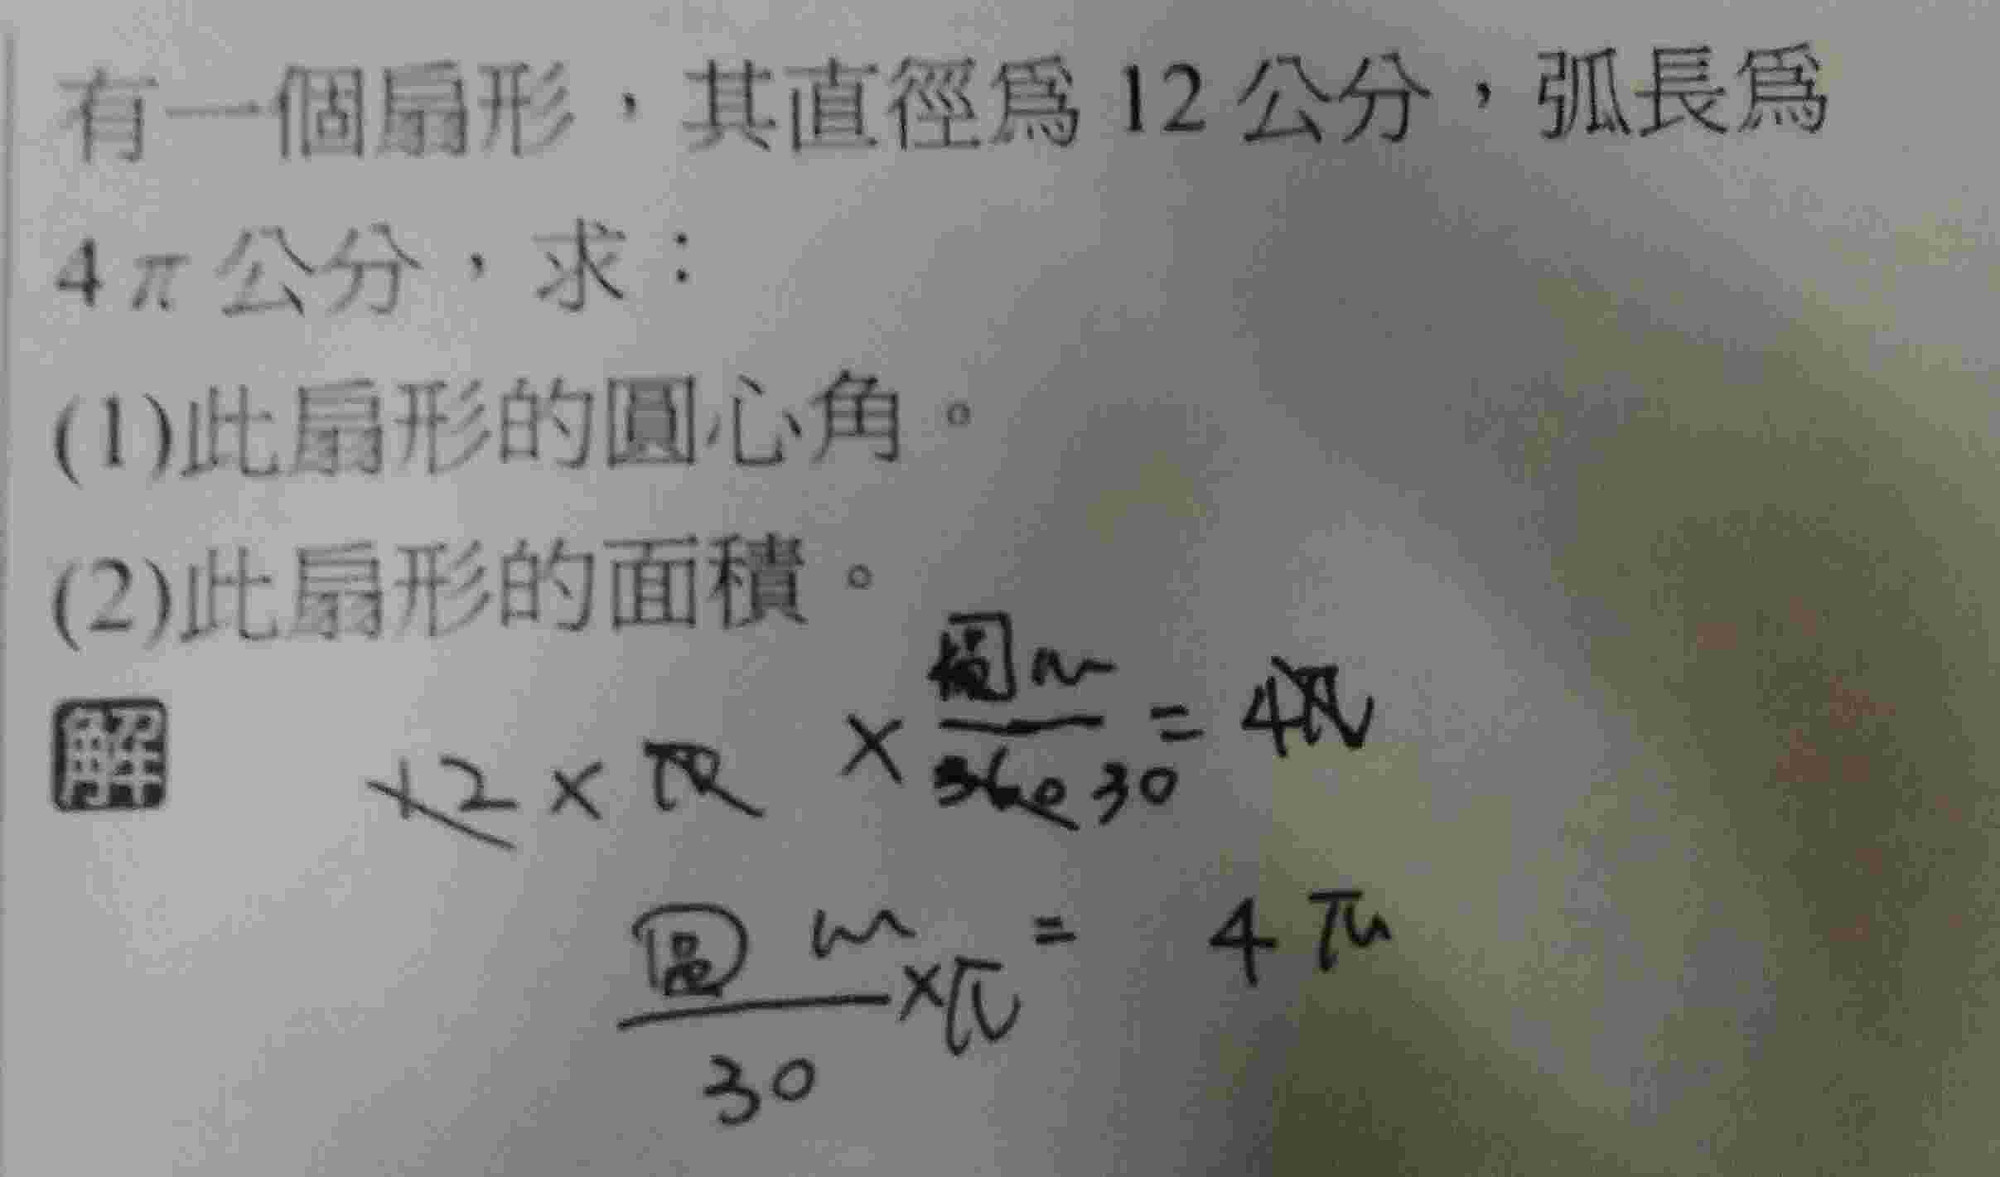 有一個扇形，其直徑爲 12 公分，弧長爲
4π 公分，求：
(1)此扇形的圓心角。
(2)此扇形的面積。
解
12 × π × 圓心/360 30 = 4π
圓心/30 ×π = 4π